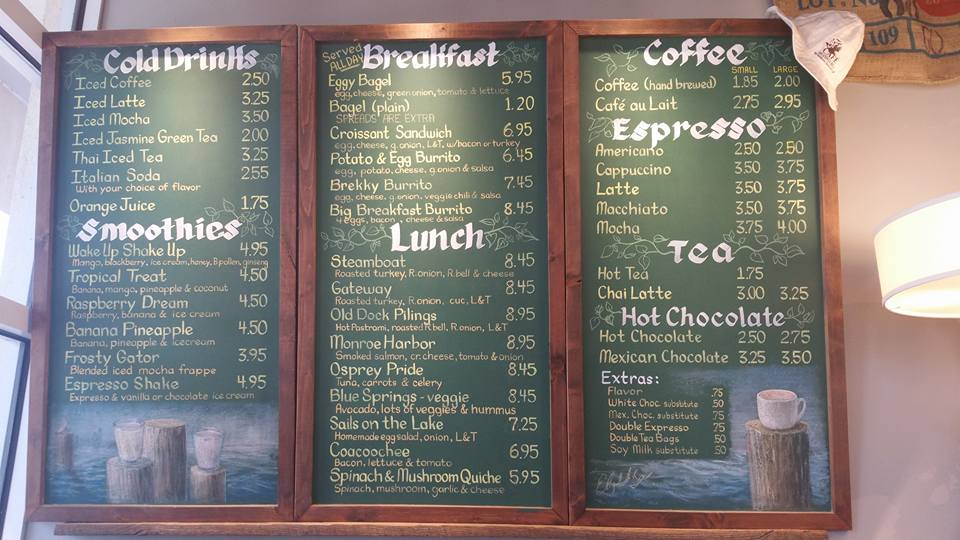 Cold Drinks
Iced Coffee 2.50
Iced Latte 3.25
Iced Mocha 3.50
Iced Jasmine Green Tea 2.00
Thai Iced Tea 3.25
Italian Soda 2.55
With your choice of flavor
Orange Juice 1.75
Smoothies
Wake Up Shake Up 4.95
Mango, blackberry, ice cream, honey, B.pollen, ginseng
Tropical Treat 4.50
Banana, mango, pineapple & coconut
Raspberry Dream 4.50
Raspberry, banana & ice cream
Banana Pineapple 4.50
Banana, pineapple & icecream
Frosty Gator 3.95
Blended iced mocha frappe
Espresso Shake 4.95
Espresso & vanilla or chocolate ice cream
Served ALLDAY Breakfast
Eggy Bagel 5.95
egg, cheese, green onion, tomato & lettuce
Bagel (plain) 1.20
SPREADS ARE EXTRA
Croissant Sandwich 6.95
egg, cheese, g.onion, L&T, w/bacon or turkey
Potato & Egg Burrito 6.45
egg, potato, cheese, g.onion & salsa
Brekky Burrito 7.45
egg, cheese, g.onion, veggie chili & salsa
Big Breakfast Burrito 8.45
4 eggs, bacon, cheese & salsa
Lunch
Steamboat 8.45
Roasted turkey, R.onion, R.bell & cheese
Gateway 8.45
Roasted turkey, R.onion, cuc, L&T
Old Dock Pilings 8.95
Hot Pastrami, roasted R.bell, R.onion, L&T
Monroe Harbor 8.95
Smoked salmon, cr.cheese, tomato & onion
Osprey Pride 8.45
Tuna, carrots & celery
Blue Springs - veggie 8.45
Avocado, lots of veggies & hummus
Sails on the Lake 7.25
Homemade egg salad, onion, L&T
Coacoochee 6.95
Bacon, lettuce & tomato
Spinach & Mushroom Quiche 5.95
Spinach, mushroom, garlic & cheese
Coffee
SMALL LARGE
Coffee (hand brewed) 1.85 2.00
Café au Lait 2.75 2.95
Espresso
Americano 2.50 2.50
Cappuccino 3.50 3.75
Latte 3.50 3.75
Macchiato 3.50 3.75
Mocha 3.75 4.00
Tea
Hot Tea 1.75
Chai Latte 3.00 3.25
Hot Chocolate
Hot Chocolate 2.50 2.75
Mexican Chocolate 3.25 3.50
Extras:
Flavor .75
White Choc. substitute .50
Mex. Choc. substitute .75
Double Expresso .75
Double Tea Bags .50
Soy Milk substitute .50
LOT. No
109